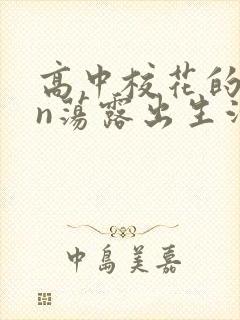 高中校花的
n荡露出生活
中島美嘉